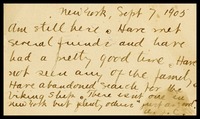 New York, Sept 7, 1905
Am still here. Have met
several friends and have
had a pretty good time. Have
not seen any of the family,
Have abandoned search for the
Viking Ship. There went one to
New York but plenty others just as good